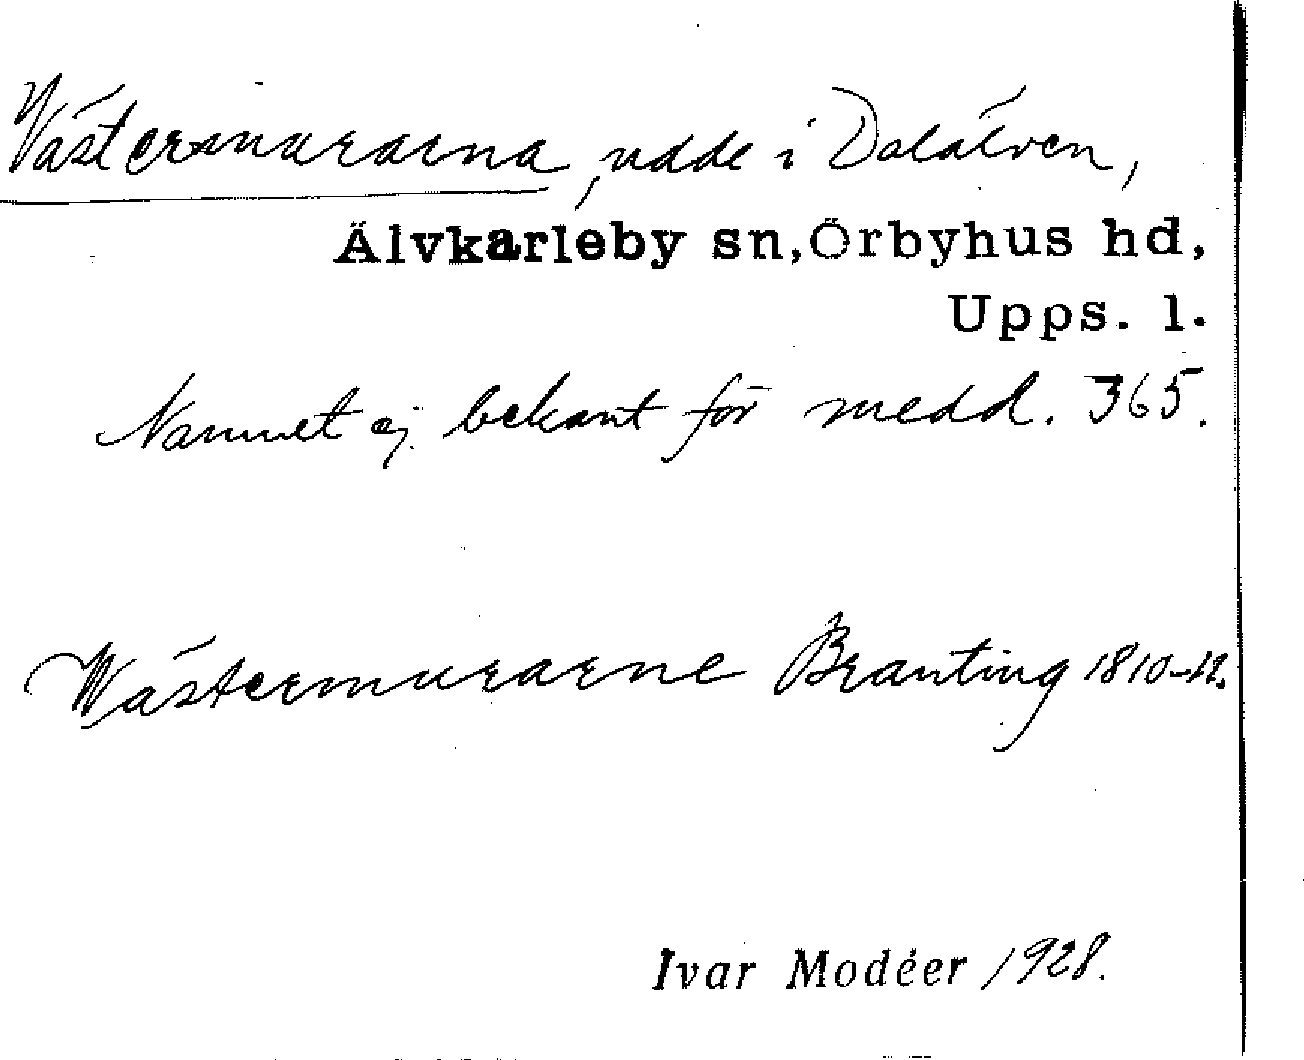 Västermurarna, udde i Dalälven,
Älvkarleby sn, Örbyhus hd,
Upps. l.
Namnet ej bekant för medd. 365.
Wästermurarne Branting 1810-12.
Ivar Modéer 1928.